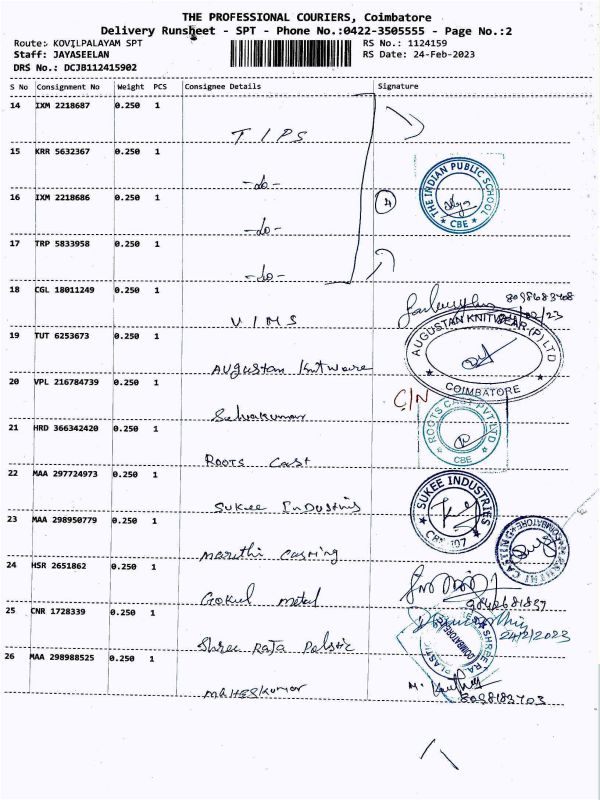 THE PROFESSIONAL COURIERS, Coimbatore
Delivery Runsheet - SPT - Phone No.:0422-3505555 - Page No.:2
Route: KOVILPALAYAM SPT
RS No.: 1124159
Staff: JAYASEELAN
RS Date: 24-Feb-2023
DRS No.: DCJB112415902
S No Consignment No Weight PCS Consignee Details Signature
14 IXM 2218687 0.250 1
TIPS
15 KRR 5632367 0.250 1
THE INDIAN PUBLIC SCHOOL
CBE
-do-
16 IXM 2218686 0.250 1
4
-do-
17 TRP 5833958 0.250 1
-do-
18 CGL 18011249 0.250 1
VIMS
19 TUT 6253673 0.250 1
AUGUSTAN KNITWEAR (P) LTD
COIMBATORE
Augustan Knitware
20 VPL 216784739 0.250 1
C/N
Selvakumar
21 HRD 366342420 0.250 1
ROOTS CAST PVT LTD
CBE
Roots Cast
22 MAA 297724973 0.250 1
SUKEE INDUSTRIES
Sukee Industris
23 MAA 298950779 0.250 1
COIMBATORE
Maruthi Casting
24 HSR 2651862 0.250 1
Gokul metal
25 CNR 1728339 0.250 1
24/2/2023
COIMBATORE
Shree Raja Palstic
26 MAA 298988525 0.250 1
Maheskumar
8098183703